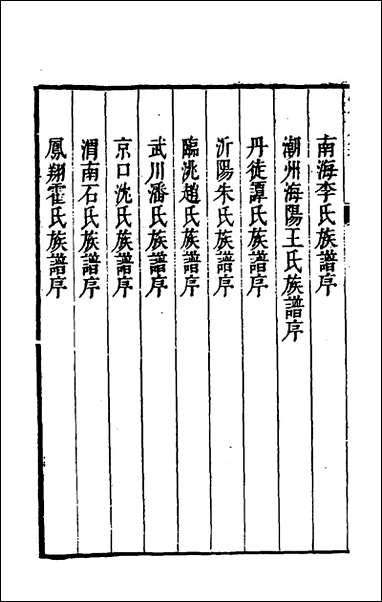 南海李氏族譜序
潮州海陽王氏族譜序
丹徒譚氏族譜序
沂陽朱氏族譜序
臨洮趙氏族譜序
武川潘氏族譜序
京口沈氏族譜序
渭南石氏族譜序
鳳翔霍氏族譜序